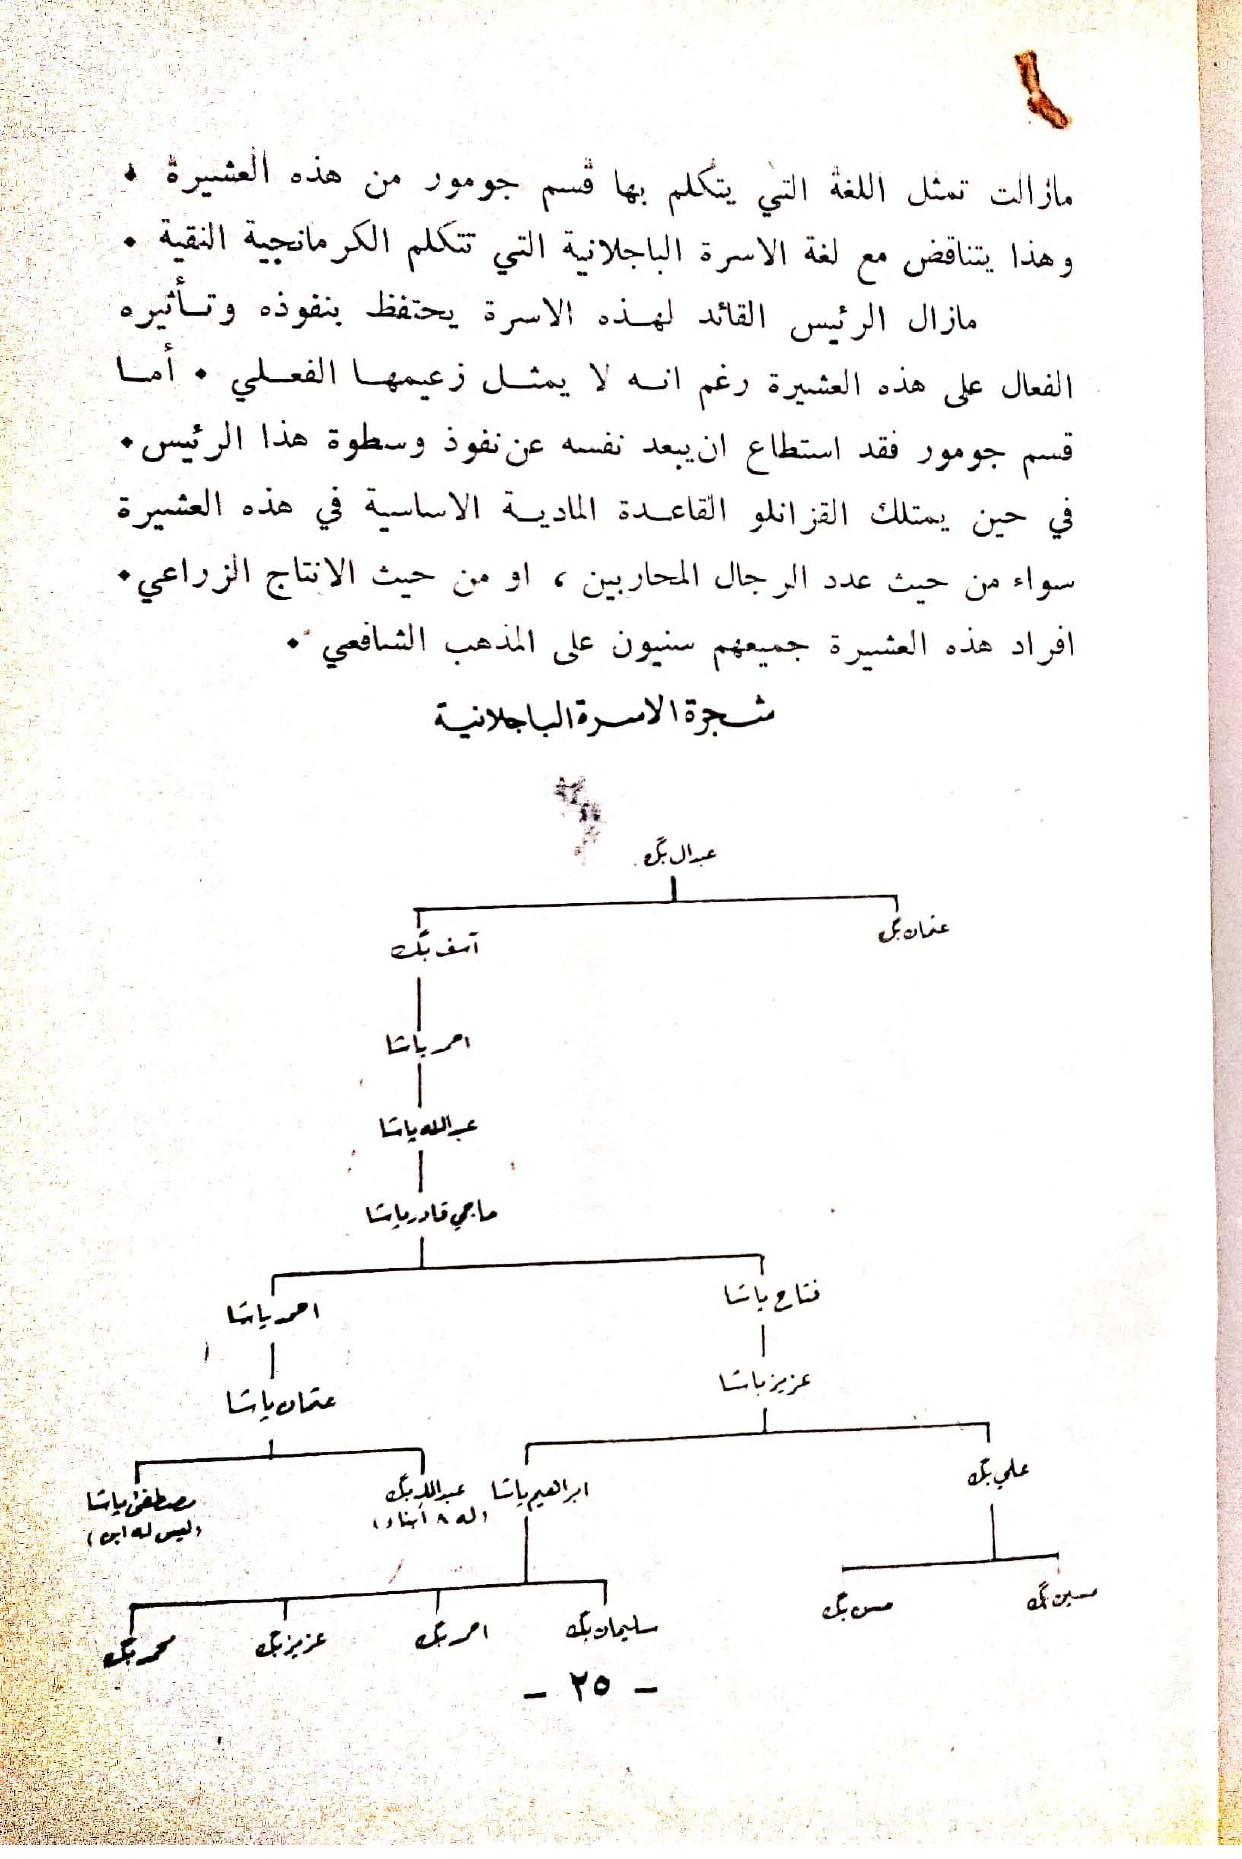 مازالت تمثل اللغة التي يتكلم بها قسم جومور من هذه العشيرة ٠
وهذا يتناقض مع لغة الاسرة الباجلانية التي تتكلم الكرمانجية النقية ٠
مازال الرئيس القائد لهـذه الاسرة يحتفظ بنفوذه وتـأثيره
الفعال على هذه العشيرة رغم انـه لا يمثـل زعيمهـا الفعـلي ٠ أمـا
قسم جومور فقد استطاع ان يبعد نفسه عن نفوذ وسطوة هذا الرئيس ٠
في حين يمتلك القزانلو القاعـدة الماديـة الاساسية في هذه العشيرة
سواء من حيث عدد الرجال المحاربين ، او من حيث الانتاج الزراعي ٠
افراد هذه العشيرة جميعهم سنيون على المذهب الشافعي ٠
شجرة الاسرة الباجلانية
عبدال بگ
عثمان بگ
آسف بگ
احمد پاشا
عبدالله پاشا
حاجي قادر پاشا
فتاح پاشا
احمد پاشا
عزيز پاشا
عثمان پاشا
علي بگ
ابراهيم پاشا
عبدالله بگ
(له ٨ أبناء)
مصطفى پاشا
(ليس له ابن)
حسين بگ
حسن بگ
سليمان بگ
احمد بگ
عزيز بگ
محمد بگ
- ٢٥ -